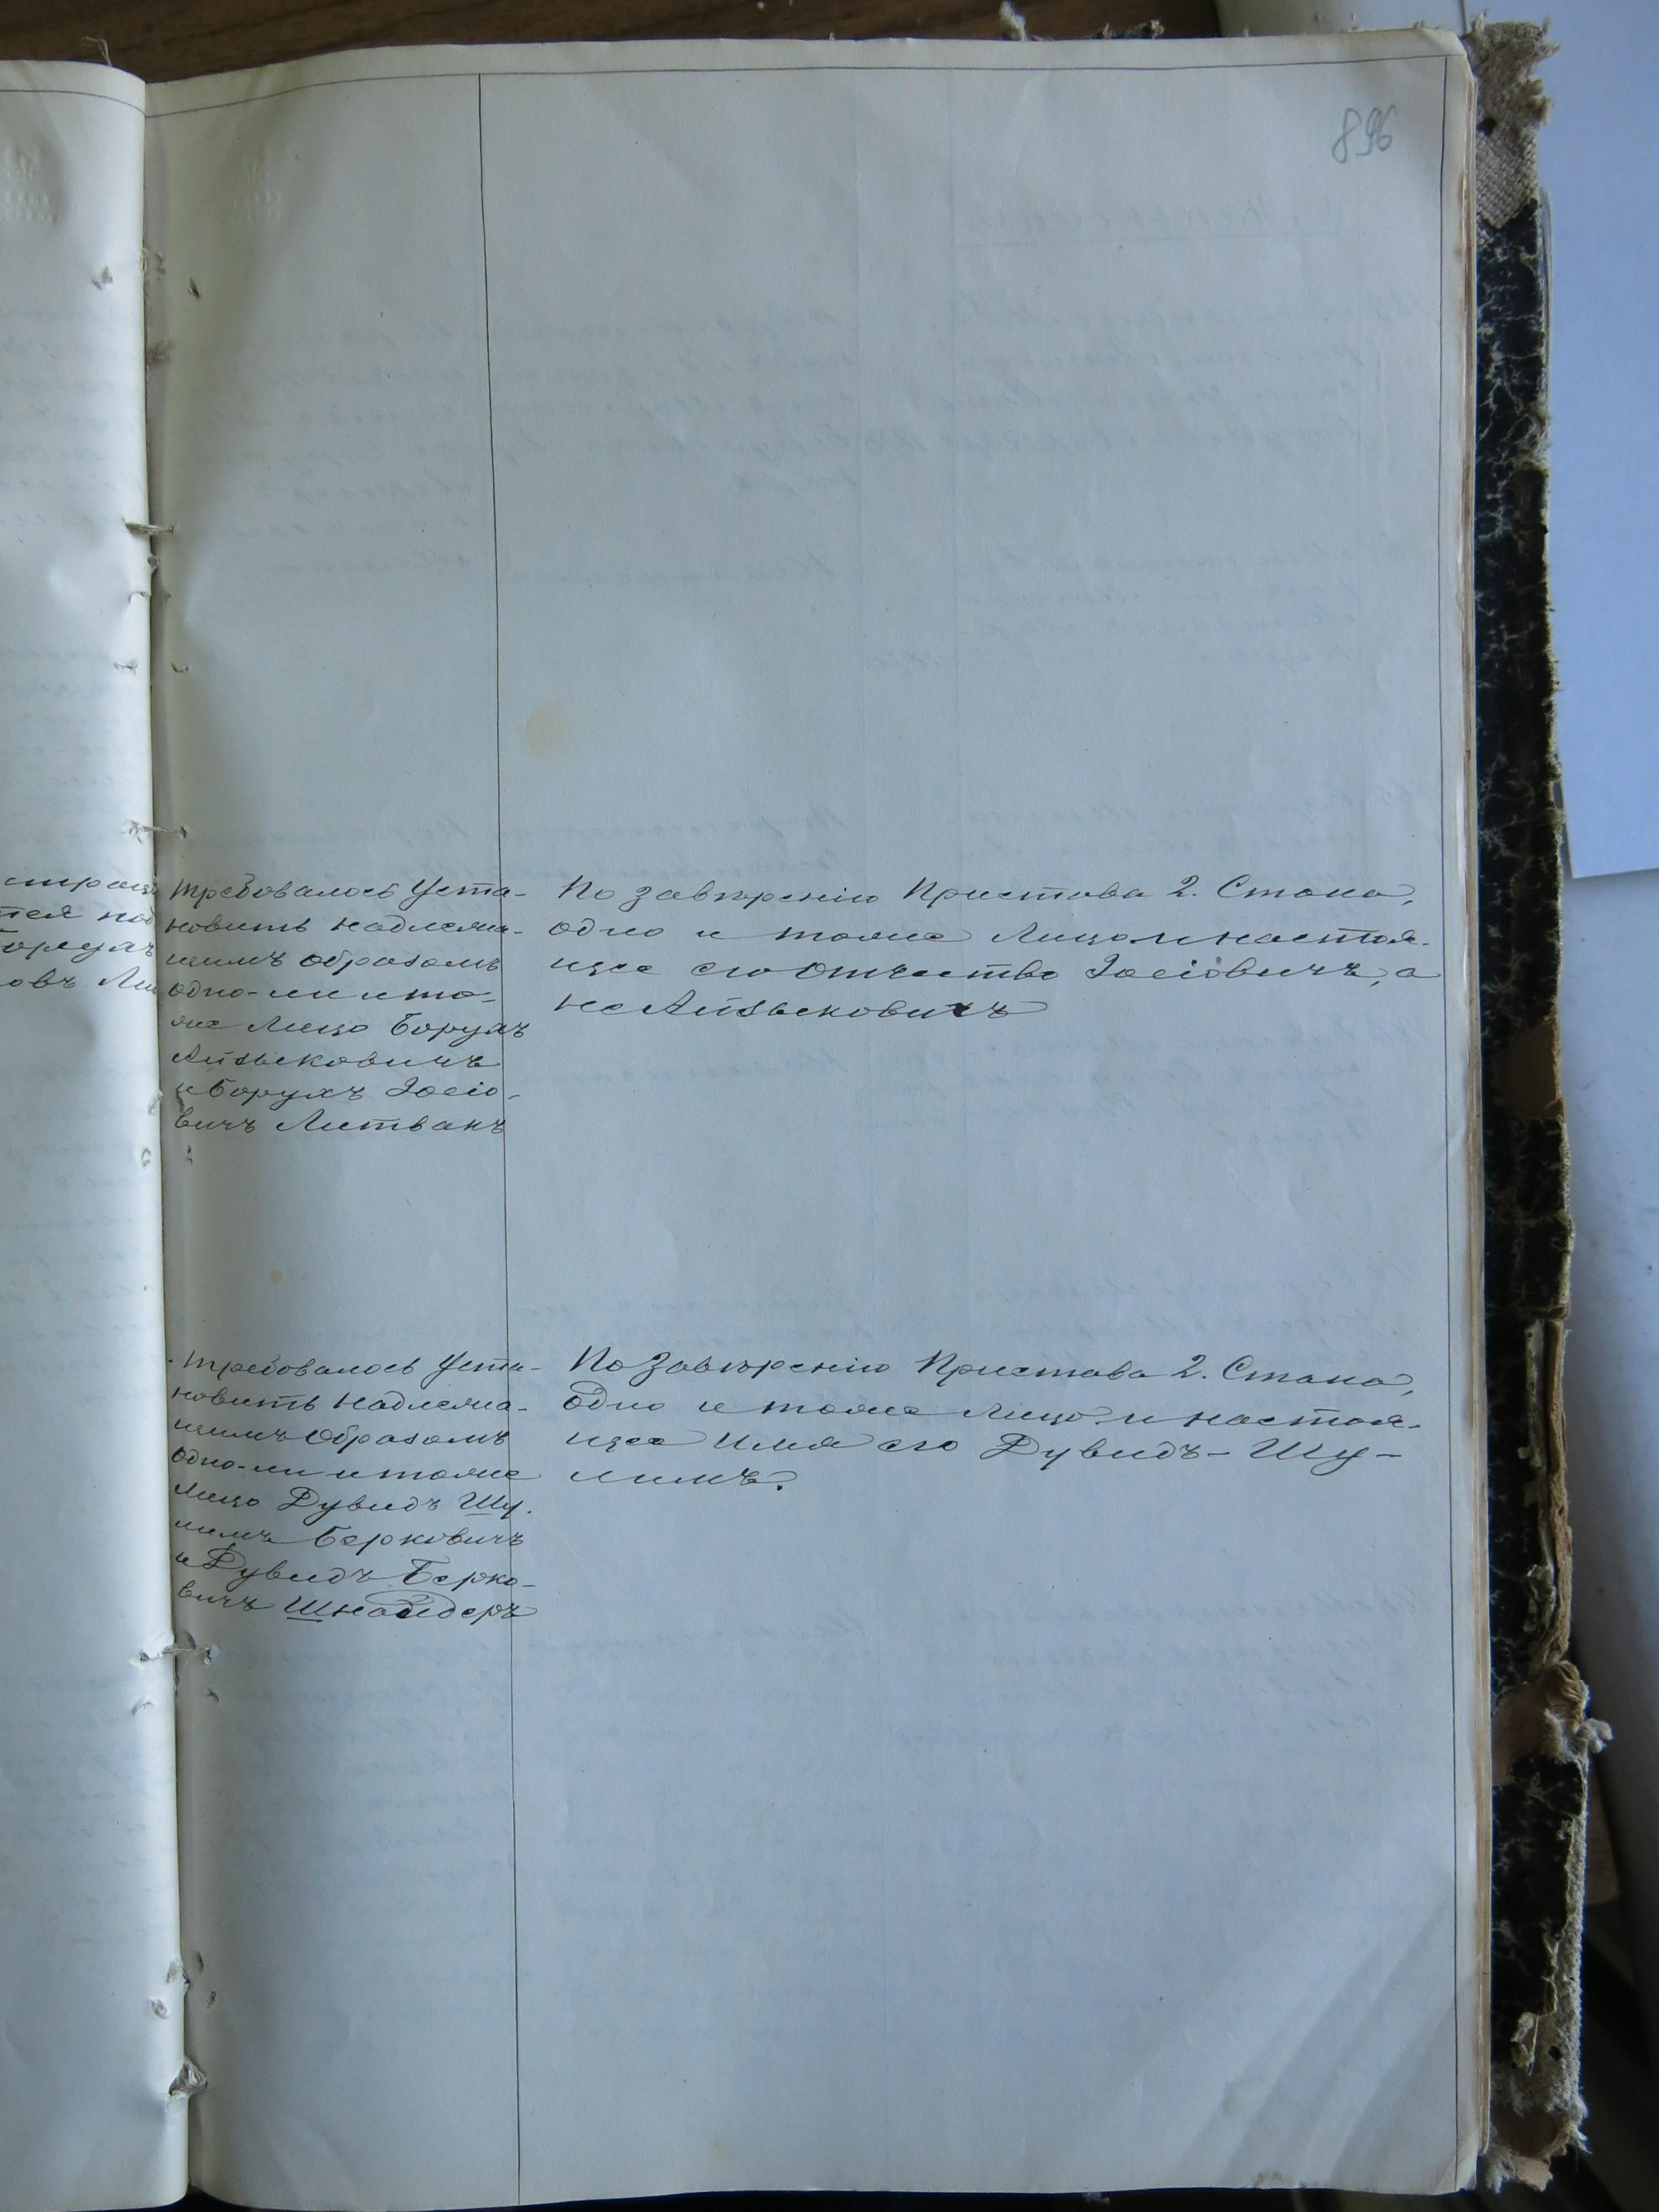 896
требовалось уста-
новить надлежа-
щимъ образомъ
одно-ли и то-
же лицо Борухъ
Айзыковичъ
и Борухъ Іосіо-
вичъ Литвакъ
По завѣренію Пристава 2. Стана,
одно и тоже лицо и настоя-
щее его отчество Іосіовичъ, а
не Айзыковичъ
требовалось уста-
новить надлежа-
щимъ образомъ
одно-ли и тоже
лицо Дувидъ Шу-
лимъ Берковичъ
и Дувидъ Берко-
вичъ Шнайдеръ
По завѣренію Пристава 2. Стана,
одно и тоже лицо и настоя-
щее имя его Дувидъ-Шу-
лимъ.